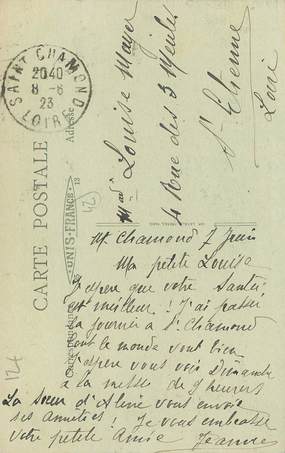 SAINT CHAMOND
20 40
8 - 6
23
LOIRE
CARTE POSTALE
Correspondance
UNIS-FRANCE
13
Adresse
42
Mad Louise Mayer
4 Rue des 3 Meules
St Etienne
Loire
St Chamond 7 Juin
Ma petite Louise
J'espère que votre Santé
est meilleur ! J'ai passé
la journée a St Chamond
tout le monde vont bien
J'espère vous voir Dimanche
a la messe de 9 heures
La Soeur d'Aline vous envoie
ses amitiés ! Je vous embrasse
votre petite Amie Jeanne
124